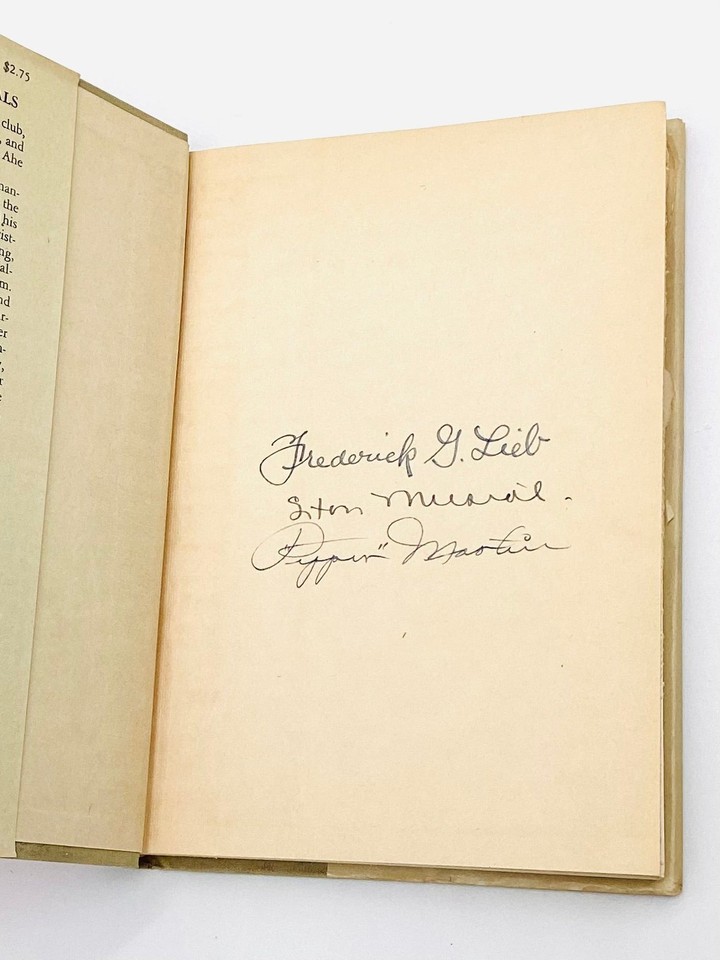 $2.75
ALS
club,
, and
Ahe
nan-
the
his
ist-
ng,
al-
m.
nd
r-
er
n-
,
r
e
Frederick G. Lieb
Stan Musial.
"Pepper" Martin